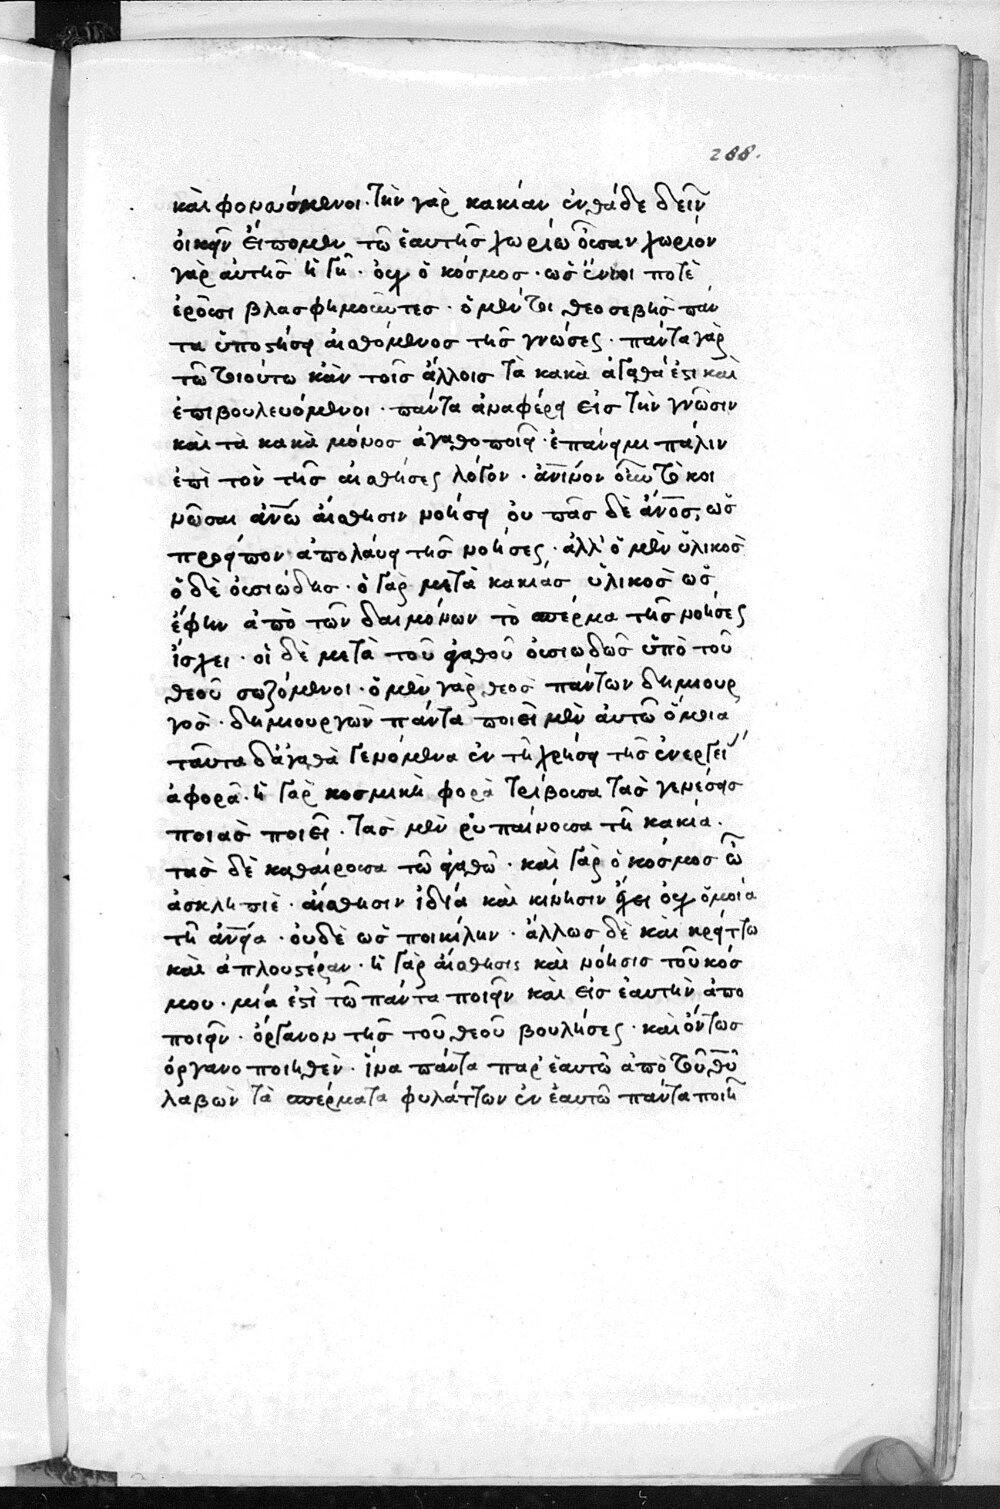 288.
καὶ φονευόμενοι· τὴν γὰρ κακίαν ἐνθάδε δεῖν
οἰκεῖν εἴπομεν τῶ ἑαυτῆς χωρίω οὖσαν χωρίον
γὰρ αὐτῆς ἡ γῆ· οὐχ ὁ κόσμος· ὡς ἔνιοι ποτὲ
ἐροῦσι βλασφημοῦντες· ὁ μέντοι θεοσεβὴς πάν
τα ὑποστήσει αἰσθόμενος τῆς γνώσεως· πάντα γὰρ
τῶ τοιούτω κἂν τοῖς ἄλλοις τὰ κακὰ ἀγαθά ἐστι καὶ
ἐπιβουλευόμενοι· πάντα ἀναφέρει εἰς τὴν γνῶσιν
καὶ τὰ κακὰ μόνος ἀγαθοποιεῖ· ἐπάνειμι πάλιν
ἐπὶ τὸν τῆς αἰσθήσεως λόγον· ἀνινον οὖν τὸ κοι
νῶσαι ἀνω αἴσθησιν νοήσει οὐ πᾶς δὲ ἀνος, ὡς
προεῖπον ἀπολαύει τῆς νοήσεως· ἀλλ' ὁ μὲν ὑλικὸς
ὁ δὲ οὐσιώδης· ὁ γὰρ μετὰ κακίας ὑλικὸς ὡς
ἔφην ἀπὸ τῶν δαιμόνων τὸ σπέρμα τῆς νοήσεως
ἴσχει· οἱ δὲ μετὰ τοῦ ἀγαθοῦ οὐσιωδῶς ὑπὸ τοῦ
θεοῦ σωζόμενοι· ὁ μὲν γὰρ θεὸς πάντων δημιουρ
γὸς· δημιουργῶν πάντα ποιεῖ μὲν αὐτῶ ὅμοια
ταῦτα δ' ἀγαθὰ γενόμενα ἐν τῆ χρήσει τῆς ἐνεργεί
ἀφορᾶ. ἡ γὰρ κοσμικὴ φορὰ τρίβουσα τὰς γενέσεις
ποιὰς ποιεῖ· τὰς μὲν ῥυπαίνουσα τῆ κακία.
τὰς δὲ καθαίρουσα τῶ ἀγαθῶ· καὶ γὰρ ὁ κόσμος ὦ
ἀσκληπιὲ· αἴσθησιν ἰδία καὶ κίνησιν ἔχει οὐχ ὅμοία
τῆ ἀνεία· οὐδὲ ὡς ποικίλην· ἄλλως δὲ καὶ κρείττω
καὶ ἁπλουστέραν· ἡ γὰρ αἴσθησις καὶ νόησις τοῦ κόσ
μου· μία ἐστὶ τῶ πάντα ποιεῖν καὶ εἰς ἑαυτὴν ἀπο
ποιεῖν· ὄργανον τῆς τοῦ θεοῦ βουλήσεως· καὶ ὄντως
ὀργανοποιηθὲν· ἵνα πάντα παρ' ἑαυτῶ ἀπὸ τοῦ θῦ
λαβὼν τὰ σπέρματα φυλάττων ἐν ἑαυτῶ πάντα ποιῆ